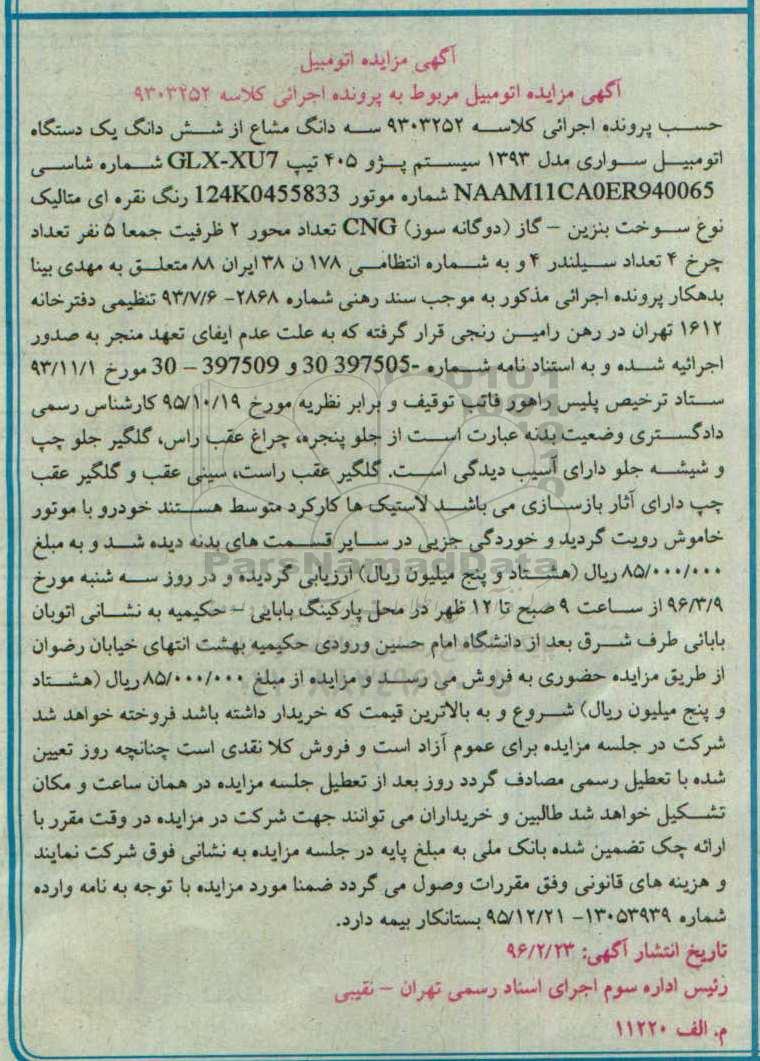 آگهی مزایده اتومبیل
آگهی مزایده اتومبیل مربوط به پرونده اجرائی کلاسه ۹۳۰۳۲۵۲
حسب پرونده اجرائی کلاسه ۹۳۰۳۲۵۲ سه دانگ مشاع از شش دانگ یک دستگاه
اتومبیل سواری مدل ۱۳۹۳ سیستم پژو ۴۰۵ تیپ GLX-XU7 شماره شاسی
NAAM11CA0ER940065 شماره موتور 124K0455833 رنگ نقره ای متالیک
نوع سوخت بنزین – گاز (دوگانه سوز) CNG تعداد محور ۲ ظرفیت جمعا ۵ نفر تعداد
چرخ ۴ تعداد سیلندر ۴ و به شماره انتظامی ۱۷۸ ن ۳۸ ایران ۸۸ متعلق به مهدی بینا
بدهکار پرونده اجرائی مذکور به موجب سند رهنی شماره ۲۸۶۸- ۹۳/۷/۶ تنظیمی دفترخانه
۱۶۱۲ تهران در رهن رامین رنجی قرار گرفته که به علت عدم ایفای تعهد منجر به صدور
اجرائیه شده و به استناد نامه شماره -397505 30 و 397509 – 30 مورخ ۹۳/۱۱/۱
ستاد ترخیص پلیس راهور فاتب توقیف و برابر نظریه مورخ ۹۵/۱۰/۱۹ کارشناس رسمی
دادگستری وضعیت بدنه عبارت است از جلو پنجره، چراغ عقب راس، گلگیر جلو چپ
و شیشه جلو دارای آسیب دیدگی است. گلگیر عقب راست، سینی عقب و گلگیر عقب
چپ دارای آثار بازسازی می باشد لاستیک ها کارکرد متوسط هستند خودرو با موتور
خاموش رویت گردید و خوردگی جزیی در سایر قسمت های بدنه دیده شد و به مبلغ
۸۵/۰۰۰/۰۰۰ ریال (هشتاد و پنج میلیون ریال) ارزیابی گردیده و در روز سه شنبه مورخ
۹۶/۳/۹ از ساعت ۹ صبح تا ۱۲ ظهر در محل پارکینگ بابایی – حکیمیه به نشانی اتوبان
بابائی طرف شرق بعد از دانشگاه امام حسین ورودی حکیمیه بهشت انتهای خیابان رضوان
از طریق مزایده حضوری به فروش می رسد و مزایده از مبلغ ۸۵/۰۰۰/۰۰۰ ریال (هشتاد
و پنج میلیون ریال) شروع و به بالاترین قیمت که خریدار داشته باشد فروخته خواهد شد
شرکت در جلسه مزایده برای عموم آزاد است و فروش کلا نقدی است چنانچه روز تعیین
شده با تعطیل رسمی مصادف گردد روز بعد از تعطیل جلسه مزایده در همان ساعت و مکان
تشکیل خواهد شد طالبین و خریداران می توانند جهت شرکت در مزایده در وقت مقرر با
ارائه چک تضمین شده بانک ملی به مبلغ پایه در جلسه مزایده به نشانی فوق شرکت نمایند
و هزینه های قانونی وفق مقررات وصول می گردد ضمنا مورد مزایده با توجه به نامه وارده
شماره ۱۳۰۵۳۹۳۹- ۹۵/۱۲/۲۱ بستانکار بیمه دارد.
تاریخ انتشار آگهی: ۹۶/۲/۲۳
رئیس اداره سوم اجرای اسناد رسمی تهران – نقیبی
م. الف ۱۱۲۲۰
ParsNamadData